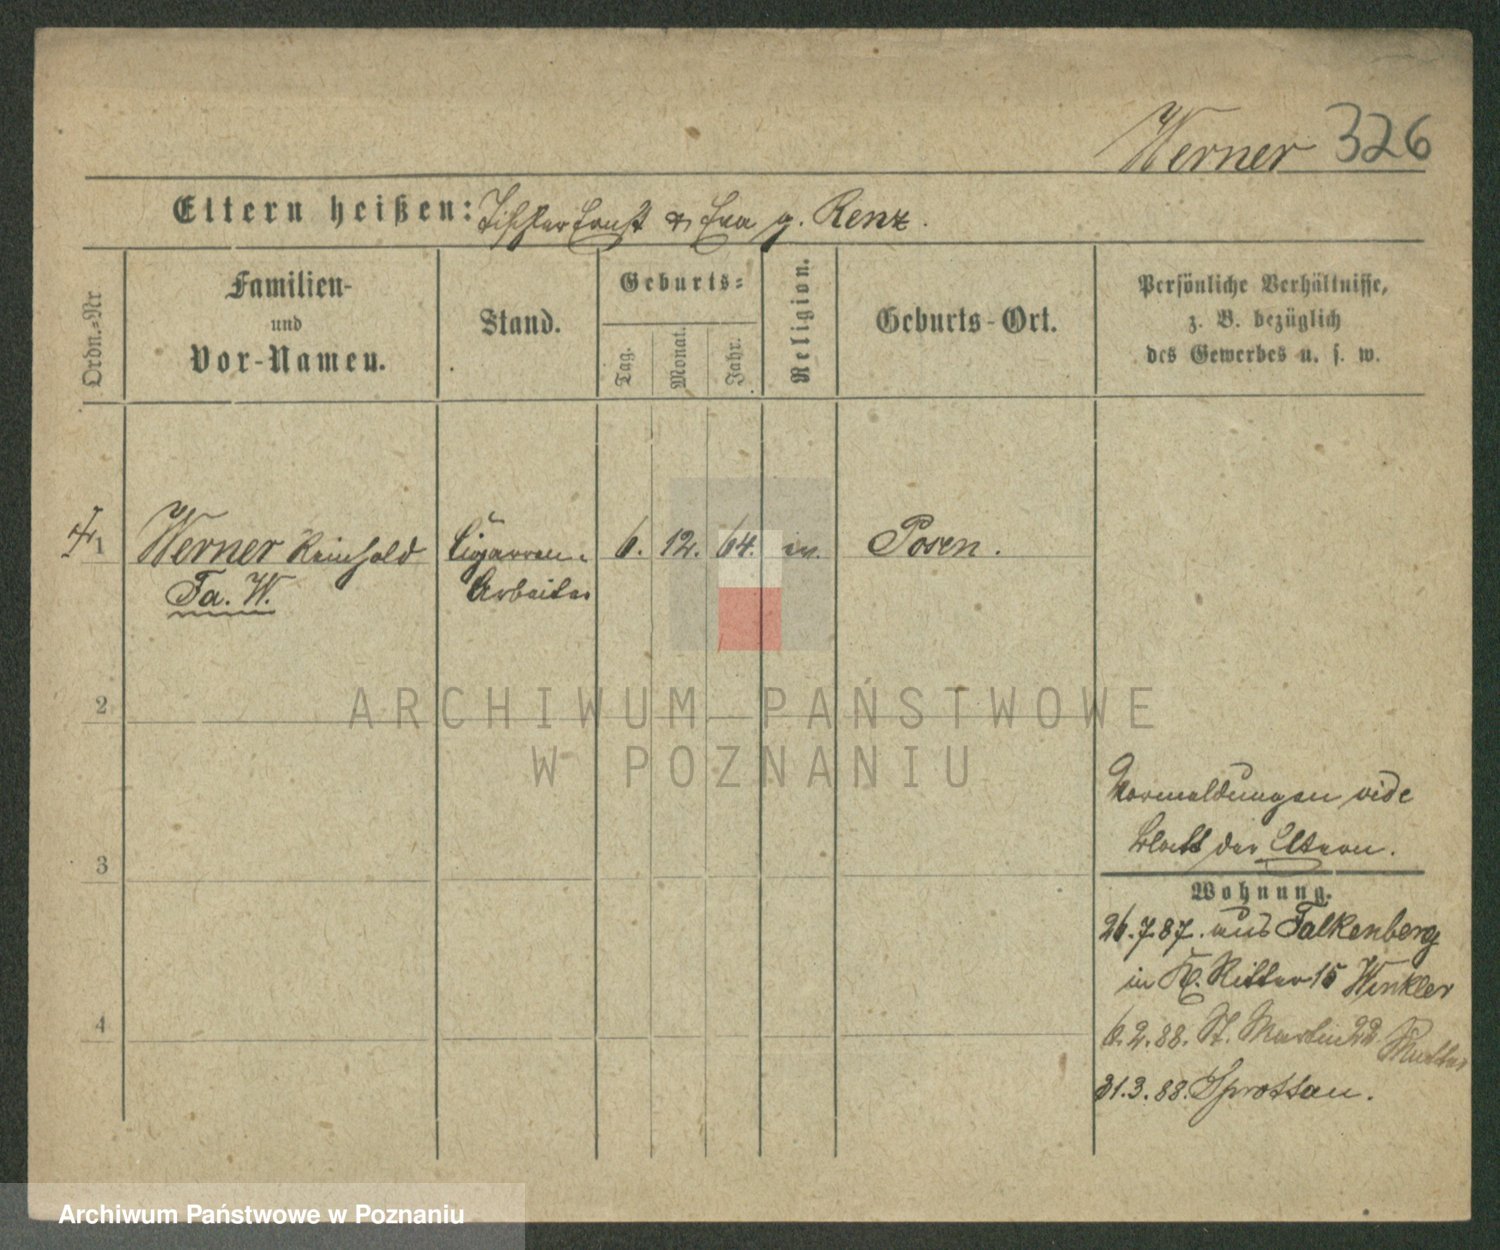 Werner 326
Eltern heißen: Tischler Ernst & Eva g. Renz.
Ordn.-Nr
Familien-
und
Vor-Namen.
Stand.
Geburts-
Tag.
Monat.
Jahr.
Religion.
Geburts-Ort.
Persönliche Verhältnisse,
z. B. bezüglich
des Gewerbes u. s. w.
1 Werner Reinhold Cigarren- 6. 12. 64. ev. Posen.
Fa. W. Arbeiter
2
ARCHIWUM PAŃSTWOWE
W POZNANIU
Vormeldungen vide
Blatt der Eltern.
3
Wohnung.
26.7.87. aus Falkenberg
in Kl. Ritter 15 Winkler
4
6.2.88. St. Martin 22. Mutter
31.3.88. Sprottau.
Archiwum Państwowe w Poznaniu